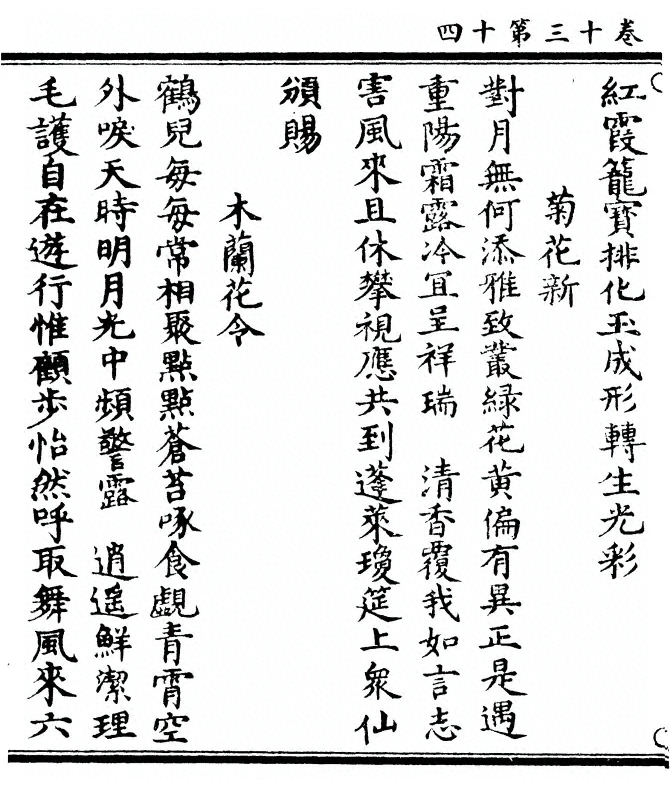 卷十三第十四
紅霞籠寶排化玉成形轉生光彩
菊花新
對月無何添雅致叢緑花黄偏有異正是遇
重陽霜露冷宜呈祥瑞 清香覆我如言志
害風來且休攀視應共到蓬萊瓊筵上衆仙
頒賜
木蘭花令
鶴兒每每常相聚點點蒼苔啄食覷青霄空
外唳天時明月光中頻警露 逍遥鮮潔理
毛護自在遊行惟顧步怡然呼取舞風來六